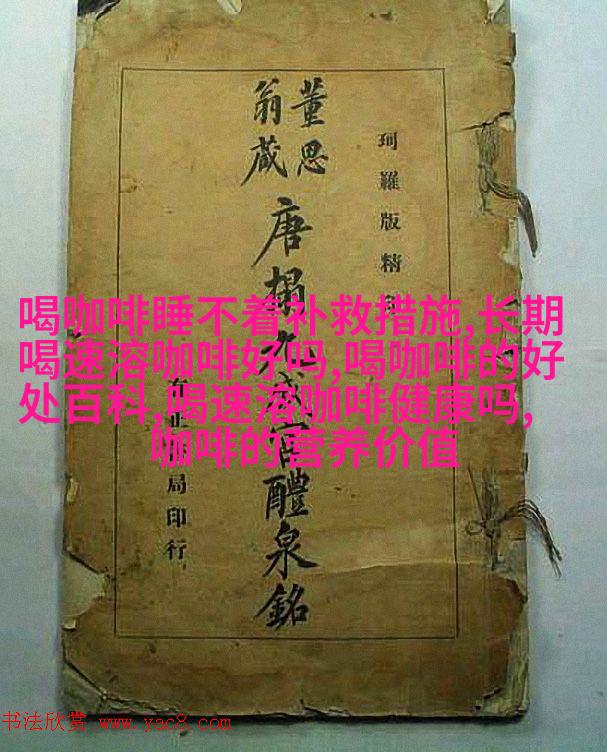 珂羅版精
董思
翁藏
唐搨九成宮醴泉銘
有正局印行
喝咖啡睡不着补救措施,长期
喝速溶咖啡好吗,喝咖啡的好
处百科,喝速溶咖啡健康吗,
咖啡的营养价值
书法欣赏 www.yac8.com